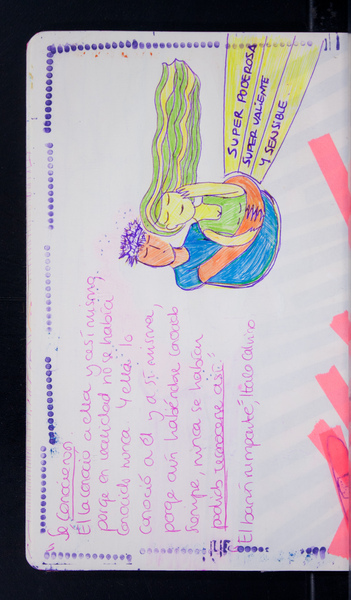 SUPER PODEROSA
SUPER VALIENTE
Y SENSIBLE
"Se conocieron.
Él la conoció a ella y a sí mismo,
porqe en realidad no se había
conocido nunca. Y ella lo
conoció a Él y a sí misma,
porqe aún habiéndose conocido
siempre, nunca se había
podido reconocerse así."
El barón rampante, Italo Calvino